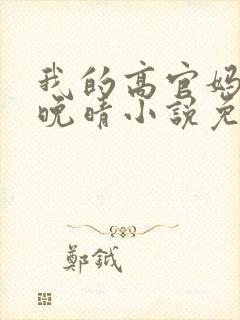 我的高官妈
晚晴小说免
鄭鉞